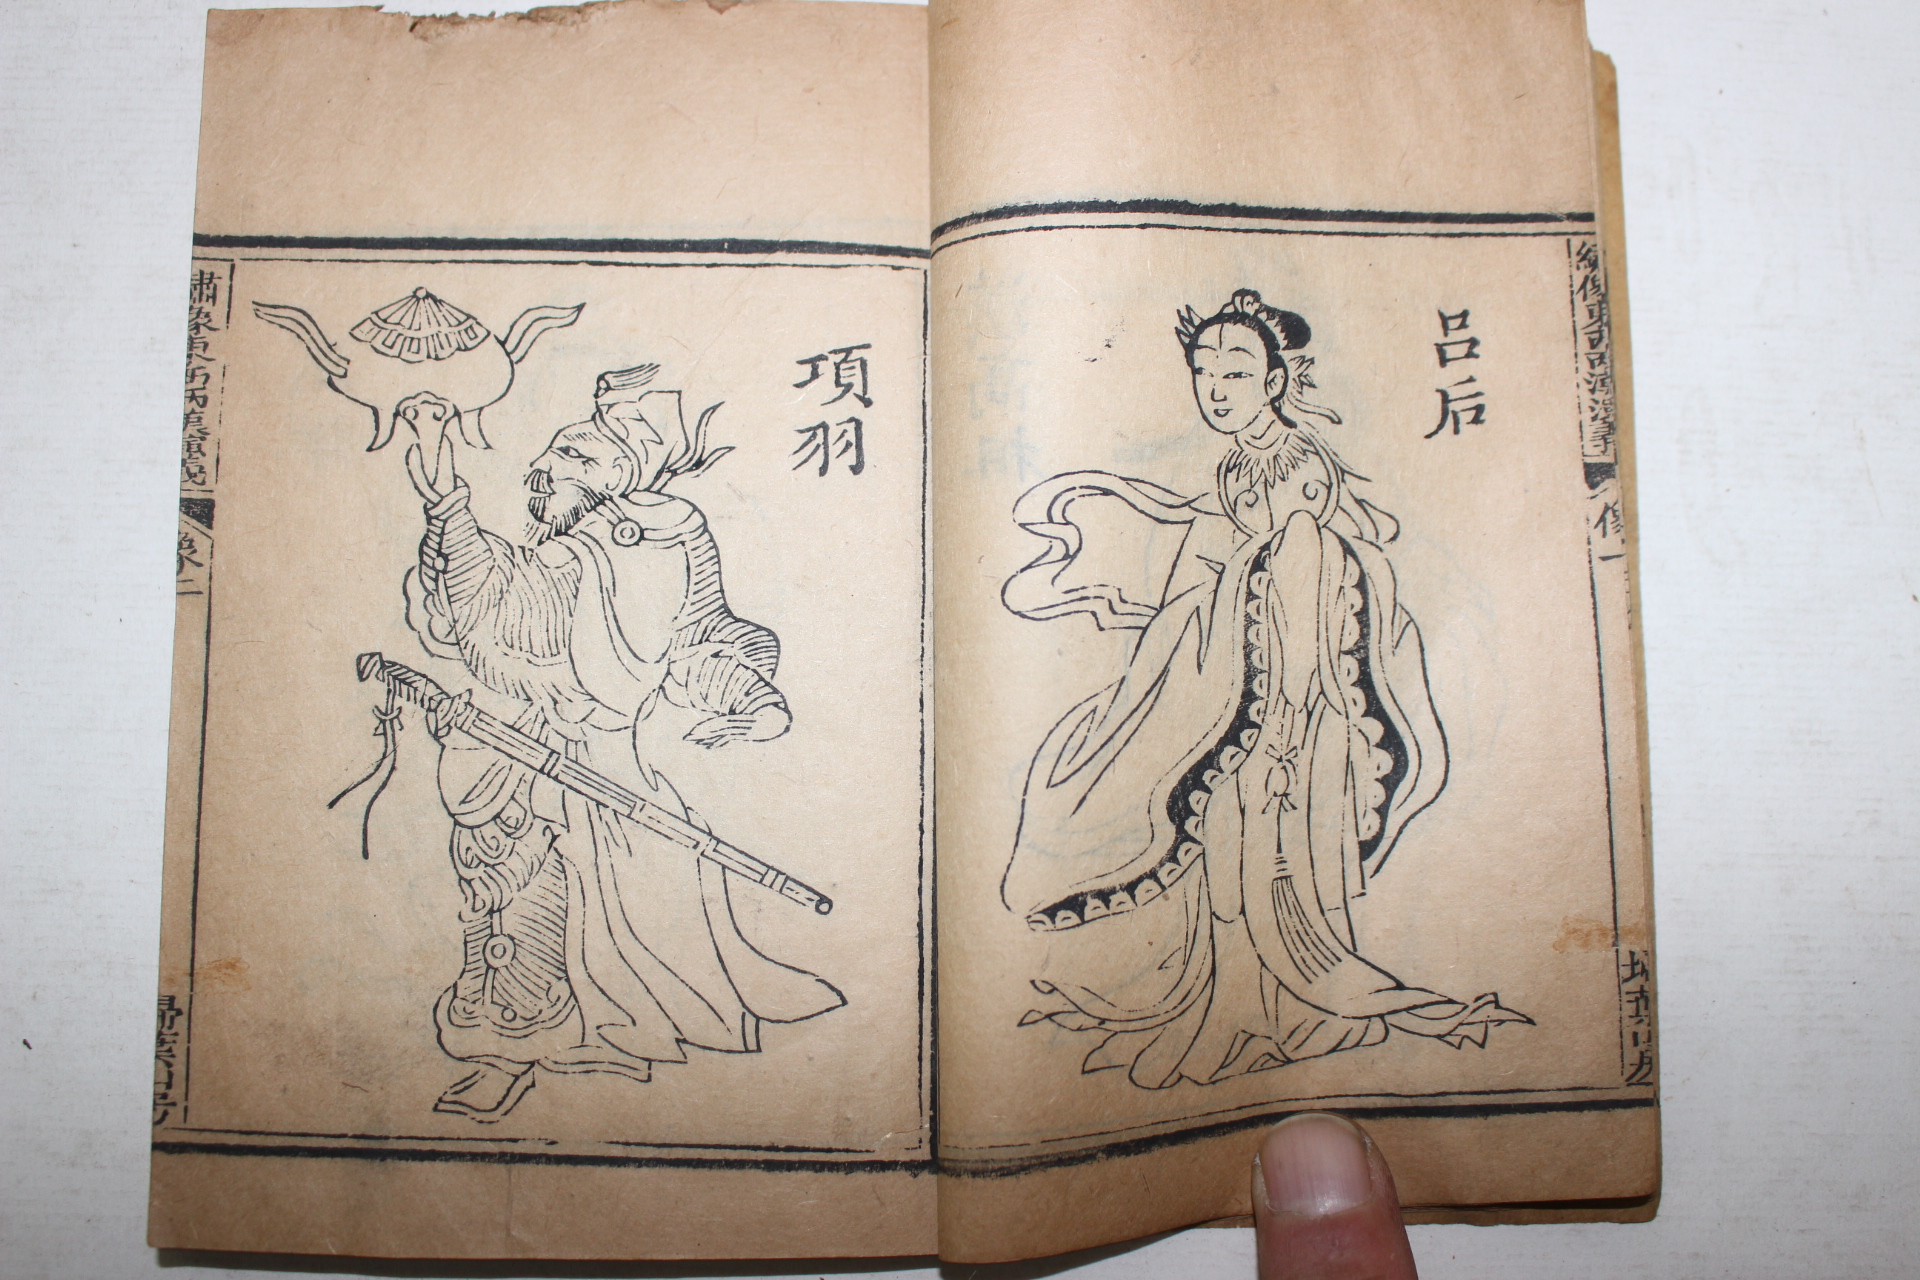 繡像東西漢演義
像一
掃葉山房
吕后
項羽
繡像東西漢演義
像二
掃葉山房